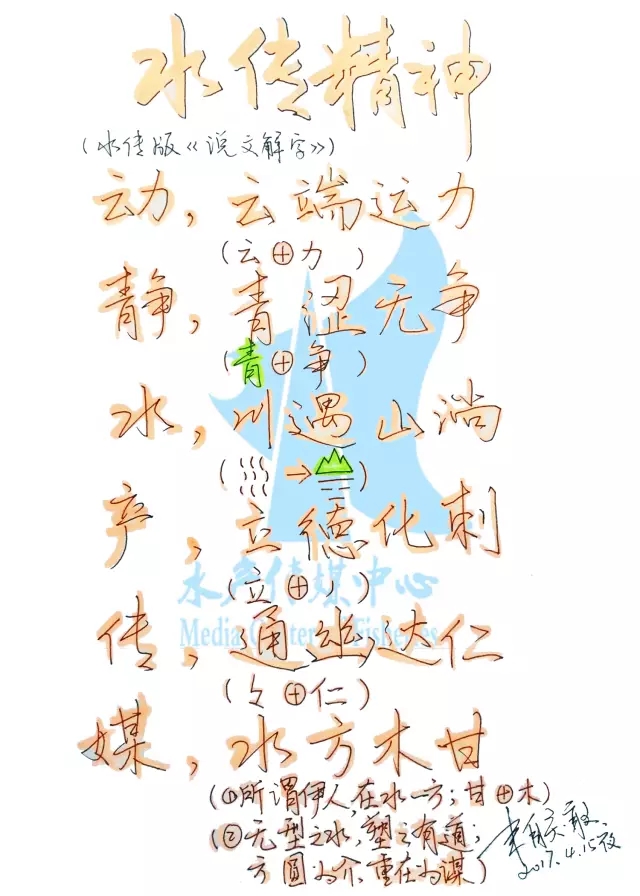 水传精神
(水传版《说文解字》)
动，云端运力
(云⊕力)
静，青涩无争
(青⊕争)
水，川遇山淌
(→)
产，立德化刺
(立⊕丿)
水产传媒中心
Media Center of Fisheries
传，通幽达仁
(⊕仁)
媒，水方木甘
(①所谓伊人，在水一方；甘⊕木
②无型之水，塑之有道，
方圆为介，重在为谋)
2017.4.15夜